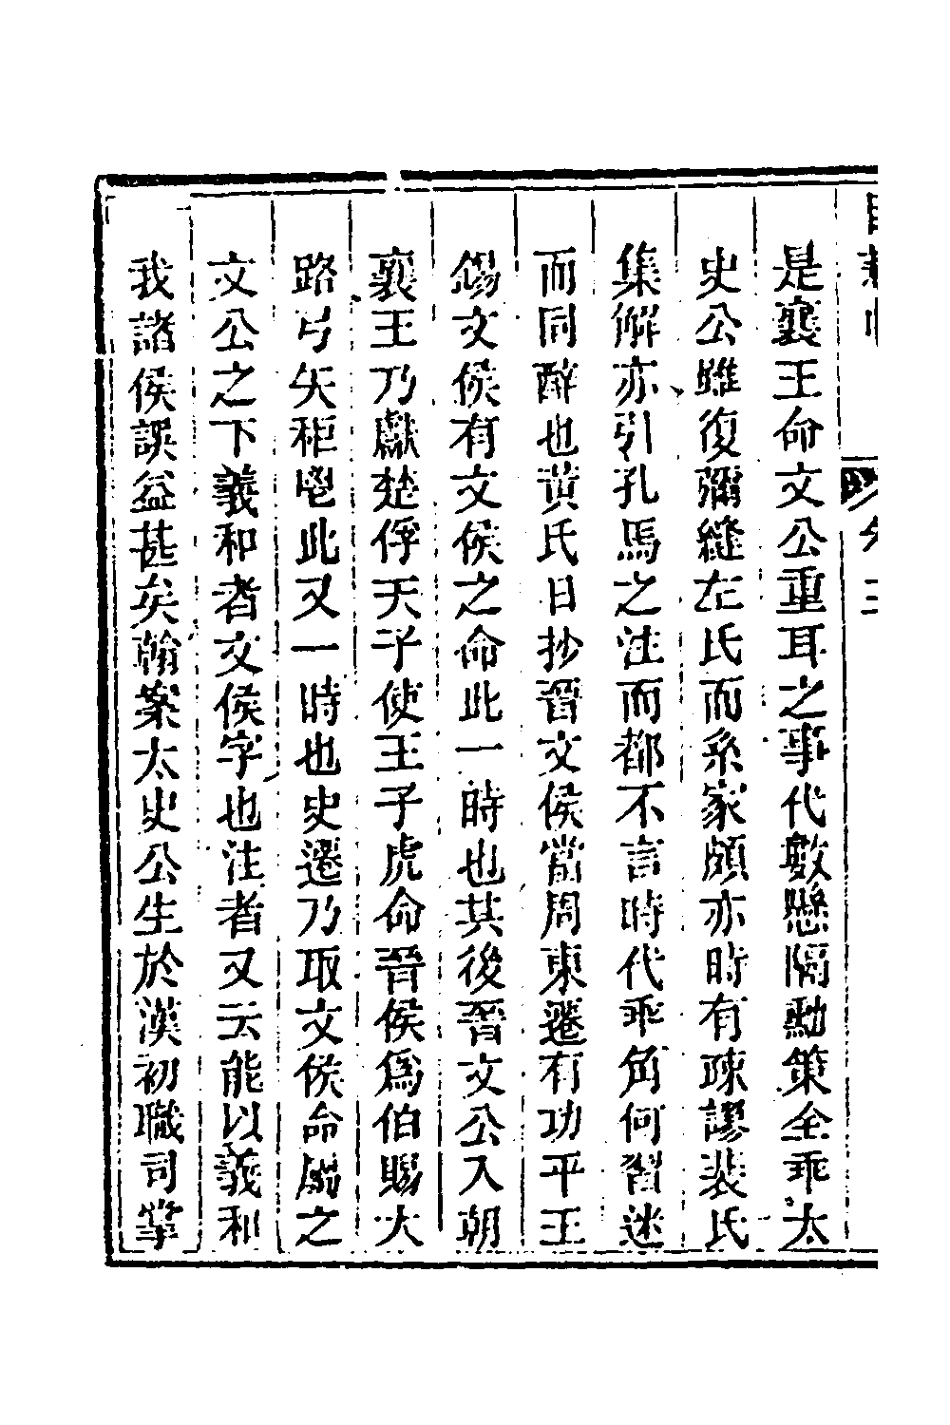 是襄王命文公重耳之事代數懸隔勳策全乖太
史公雖復彌縫左氏而系家頗亦時有疎謬裴氏
集解亦引孔馬之注而都不言時代乖角何習迷
而同醉也黄氏日抄晉文侯當周東遷有功平王
錫文侯有文侯之命此一時也其後晉文公入朝
襄王乃獻楚俘天子使王子虎命晉侯爲伯賜大
路弓矢秬鬯此又一時也史遷乃取文侯命屬之
文公之下義和者文侯字也注者又云能以義和
我諸侯誤益甚矣翰案太史公生於漢初職司掌